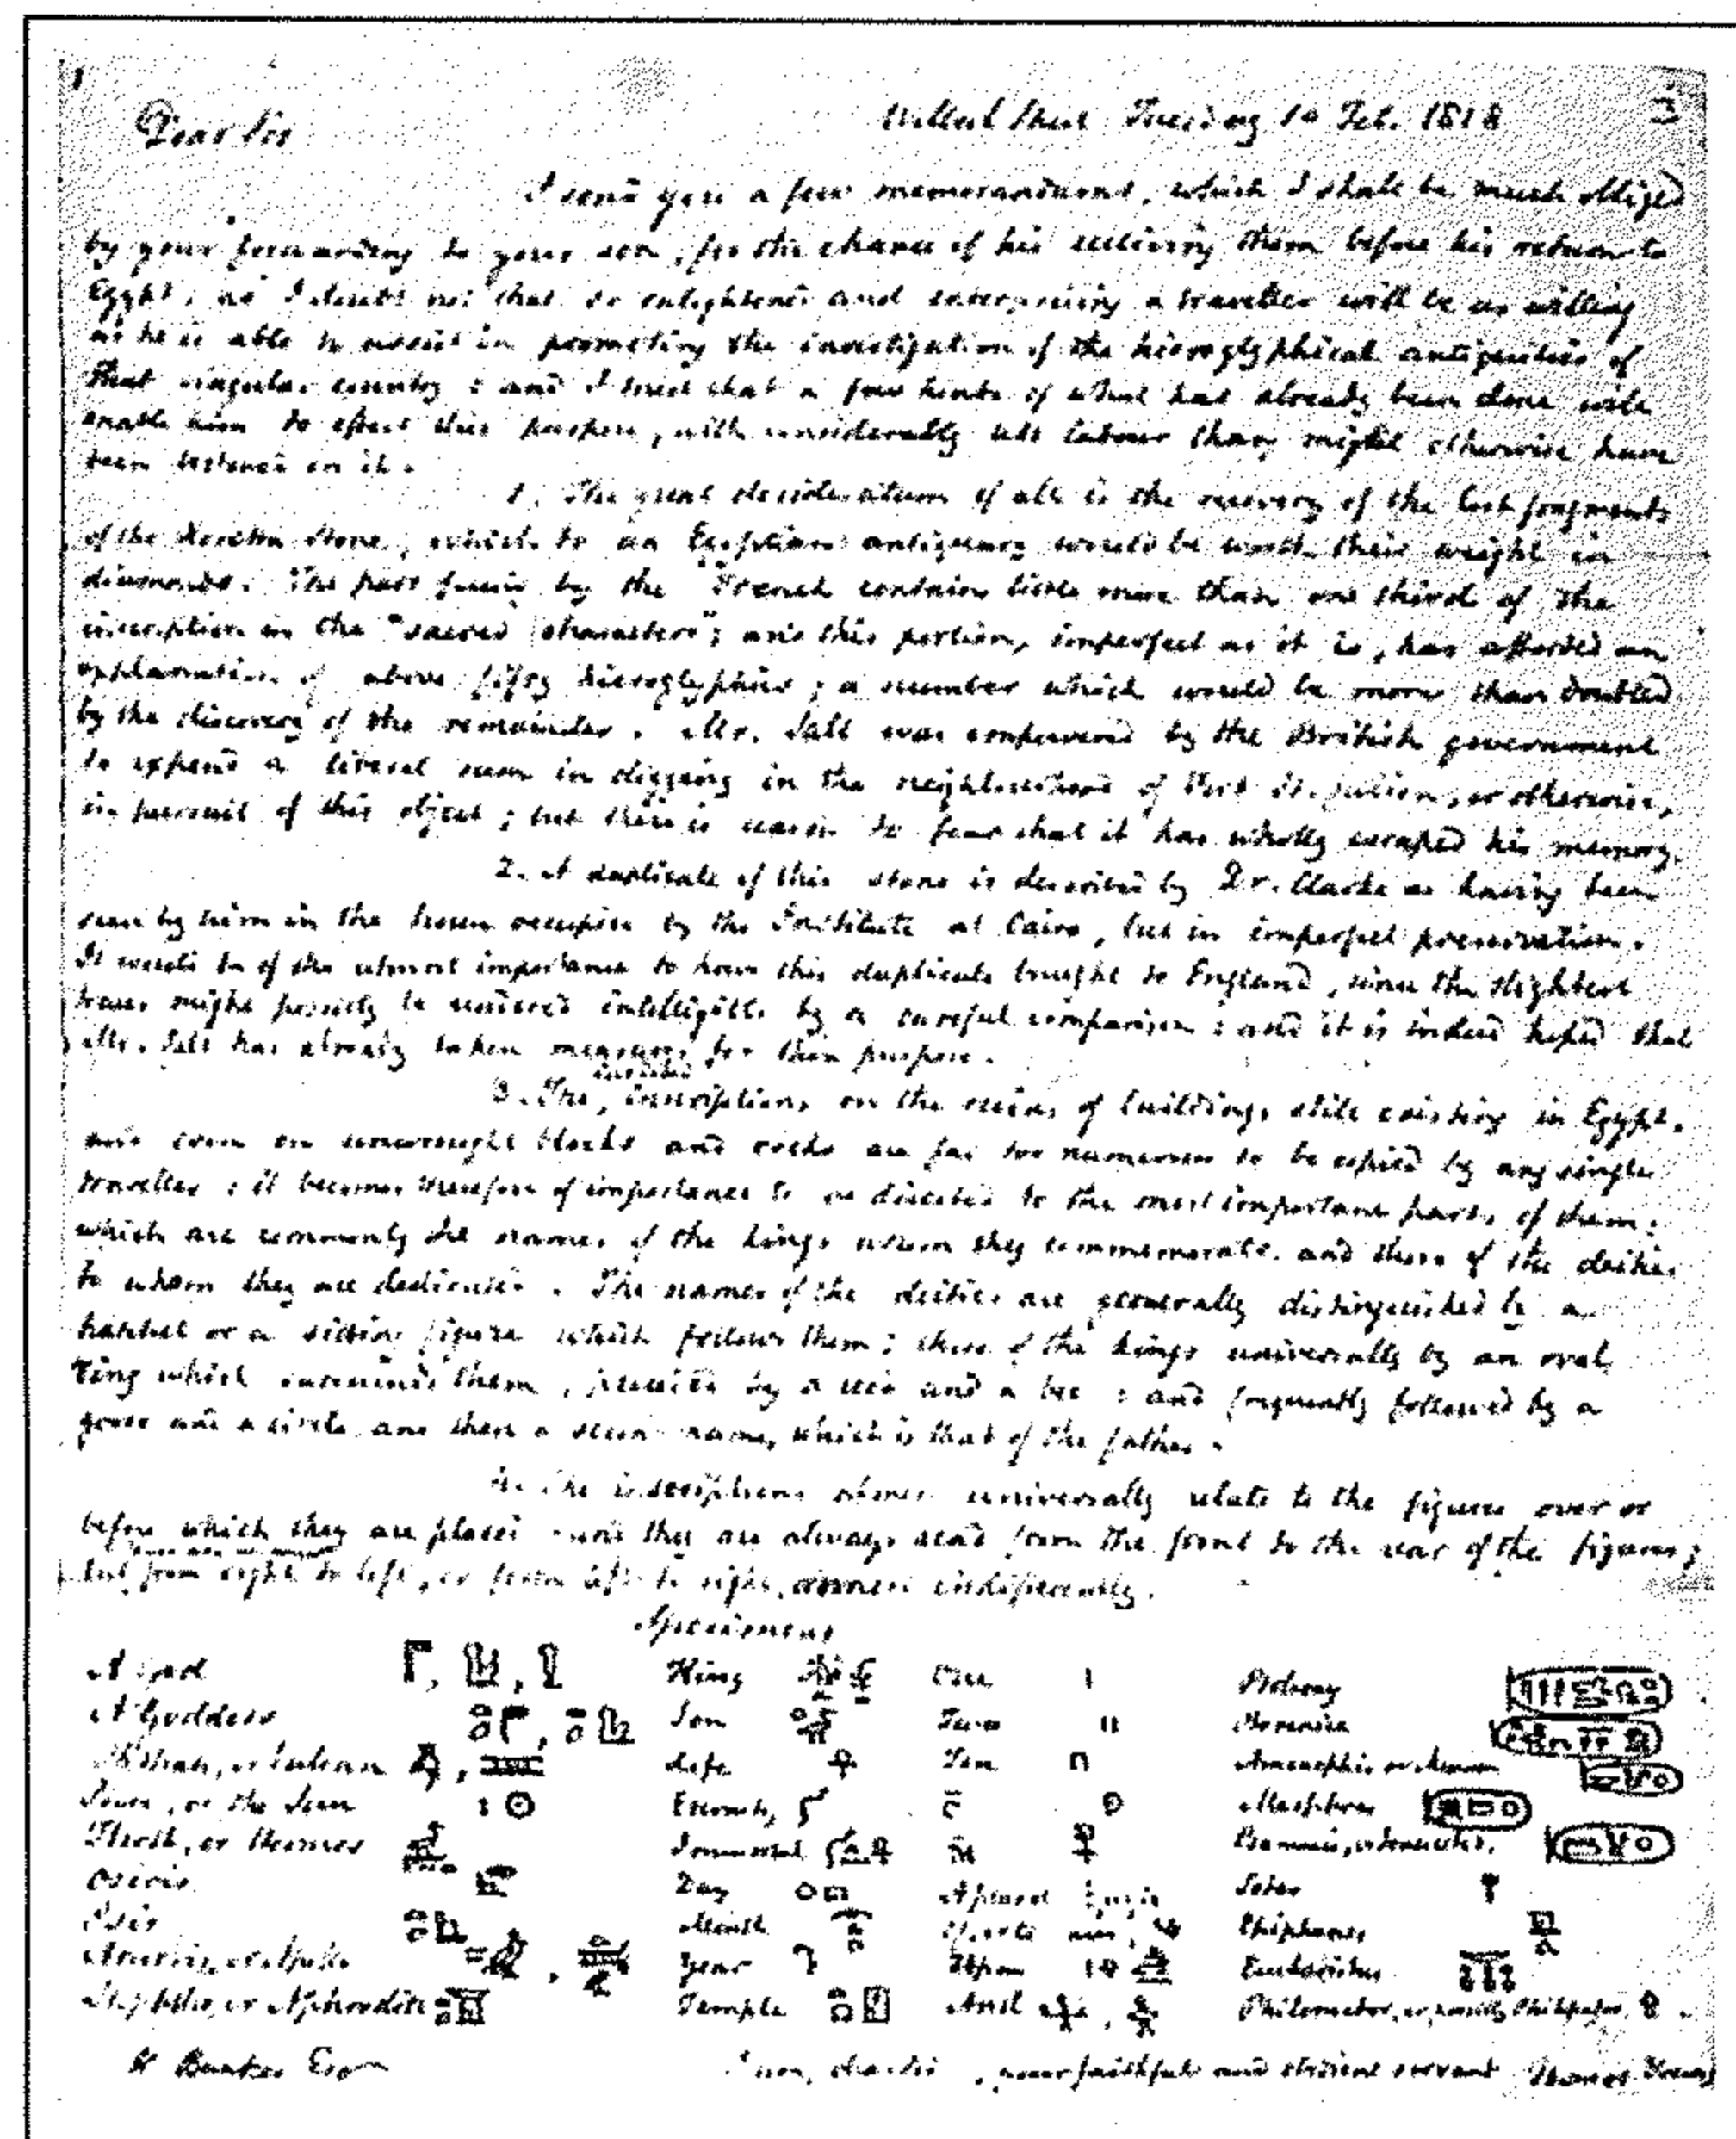 Dear Sir
Welbeck Street Tuesday 10 Feb. 1818
I send you a few memorandums, which I shall be much obliged
by your forwarding to your son, for the chance of his receiving them before his return to
Egypt; as I doubt not that so enlightened and enterprising a traveller will be as willing
as he is able to assist in promoting the investigation of the hieroglyphical antiquities of
that singular country: and I trust that a few hints of what has already been done will
enable him to effect this purpose, with considerably less labour than might otherwise have
been bestowed on it.
1. The great desideratum of all is the recovery of the lost fragments
of the Rosetta stone, which to an Egyptian antiquary would be worth their weight in
diamonds. The part found by the French contains little more than one third of the
inscription in the "sacred characters"; and this portion, imperfect as it is, has afforded an
explanation of above fifty hieroglyphics; a number which would be more than doubled
by the discovery of the remainder. Mr. Salt was empowered by the British government
to expend a liberal sum in digging in the neighbourhood of Fort St. Julien, or otherwise,
in pursuit of this object; but there is reason to fear that it has wholly escaped his memory.
2. A duplicate of this stone is described by Dr. Clarke as having been
seen by him in the house occupied by the Institute at Cairo, but in imperfect preservation.
It would be of the utmost importance to have this duplicate brought to England, since the slightest
traces might possibly be rendered intelligible by a careful comparison: and it is indeed hoped that
Mr. Salt has already taken measures for this purpose.
3. The, inscriptions on the ruins of buildings still existing in Egypt,
and even on unwrought blocks and rocks are far too numerous to be copied by any single
traveller: it becomes therefore of importance to be directed to the most important parts of them;
which are commonly the names of the kings whom they commemorate, and those of the deities
to whom they are dedicated. The names of the deities are generally distinguished by a
hatchet or a sitting figure which follows them; those of the kings universally by an oval
ring which surrounds them, preceded by a reed and a bee: and frequently followed by a
goose and a circle and then a second name, which is that of the father.
4. The inscriptions almost universally relate to the figures over or
before which they are placed and they are always read from the front to the rear of the figures;
but from right to left, or from left to right, almost indifferently.
Specimens
A God King One Ptolemy
A Goddess Son Two Berenice
or Vulcan Life Ten
or the Sun Eternity
Thoth, or Hermes Immortal
Osiris Day A plural Soter
Isis Month Epiphanes
Year Upon Eucharistus
Nephthe, or Aphrodite Temple And Philometor, or possibly Philopator
W Bankes Esqr
I am, dear Sir, your faithful and obedient servant Thomas Young